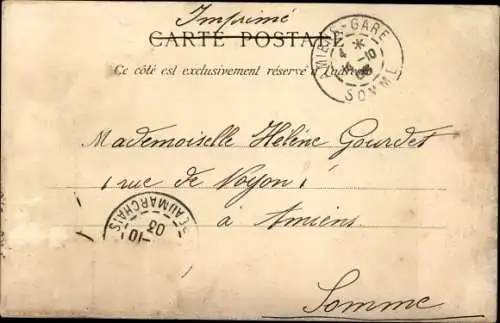 Imprimé
CARTE POSTALE
Ce côté est exclusivement réservé à l'adresse
AMIENS-GARE
SOMME
Mademoiselle Hélène Gourdes
1 rue de Noyon 1
à Amiens
BEAUMARCHAIS
10
03
Somme